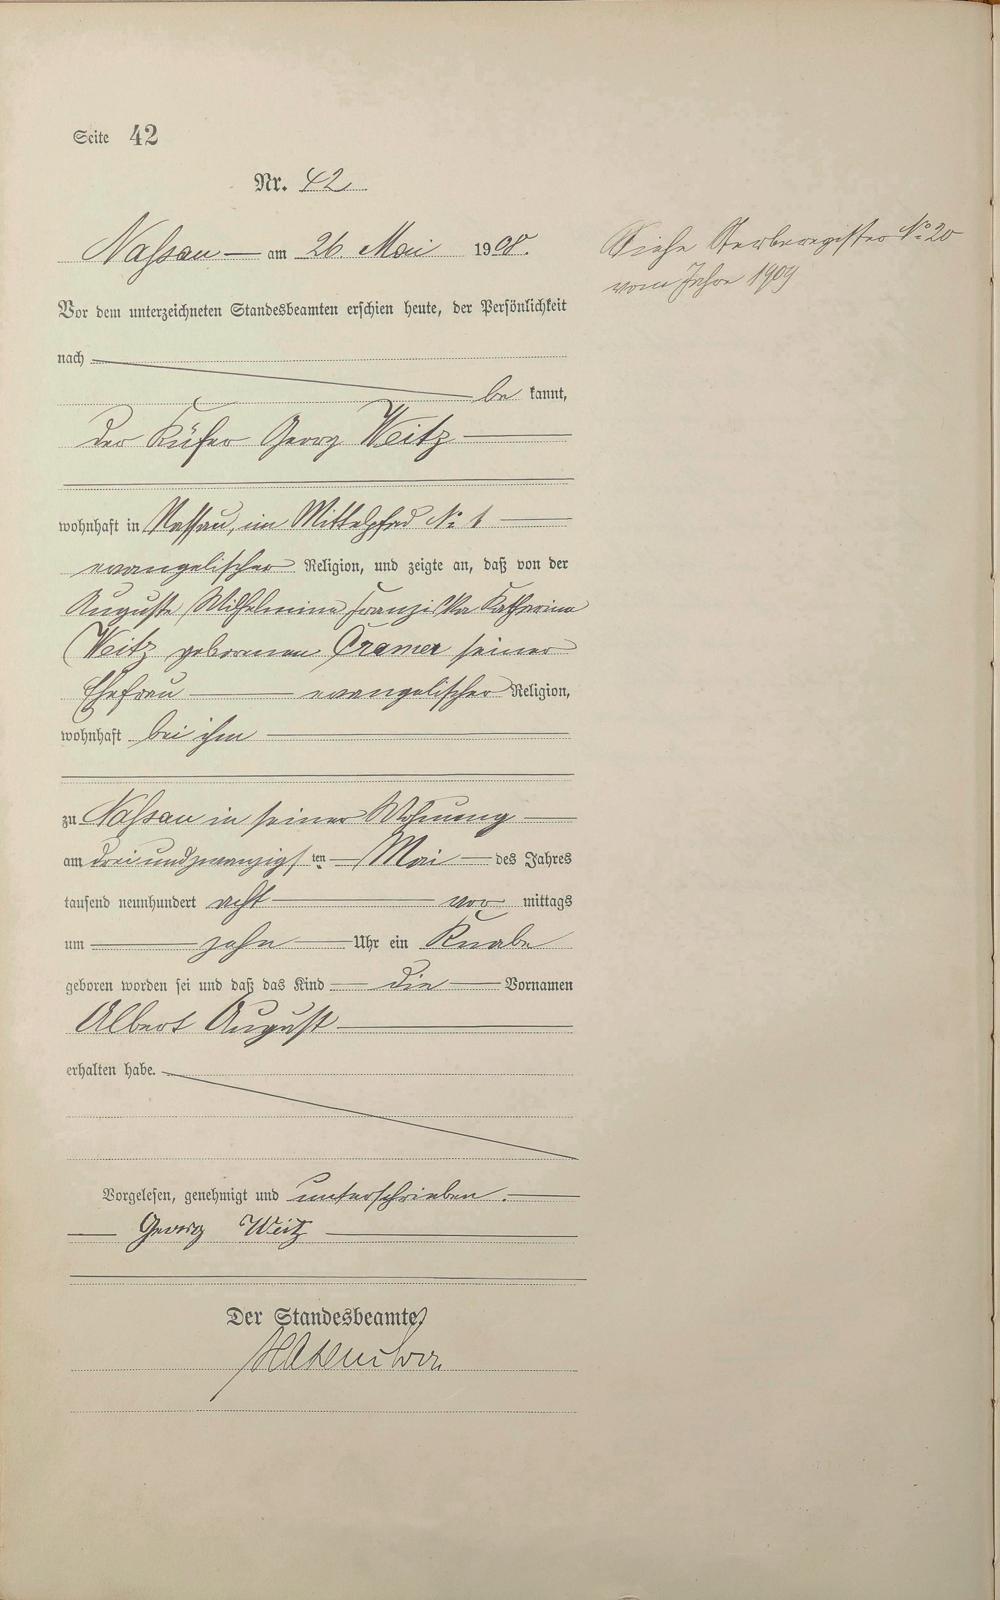 Seite 42
Nr. 42
Nassau — am 26. Mai 1908.
Siehe Sterberegister No 20
vom Jahre 1909
Vor dem unterzeichneten Standesbeamten erschien heute, der Persönlichkeit
nach
be kannt,
der Küfer Georg Weitz
wohnhaft in Nassau, im Mittelpfad No 1
evangelischer Religion, und zeigte an, daß von der
Auguste Wilhelmine Franziska Katharina
Weitz geborenen Cramer seiner
Ehefrau — evangelischer Religion,
wohnhaft bei ihm
zu Nassau in seiner Wohnung
am dreiundzwanzigs ten Mai des Jahres
tausend neunhundert acht vor mittags
um zehn Uhr ein Knabe
geboren worden sei und daß das Kind die Vornamen
Albert August
erhalten habe.
Vorgelesen, genehmigt und unterschrieben.
Georg Weitz
Der Standesbeamte